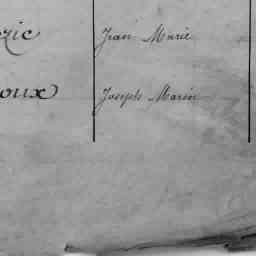 Jean Marie
oux Joseph Marin